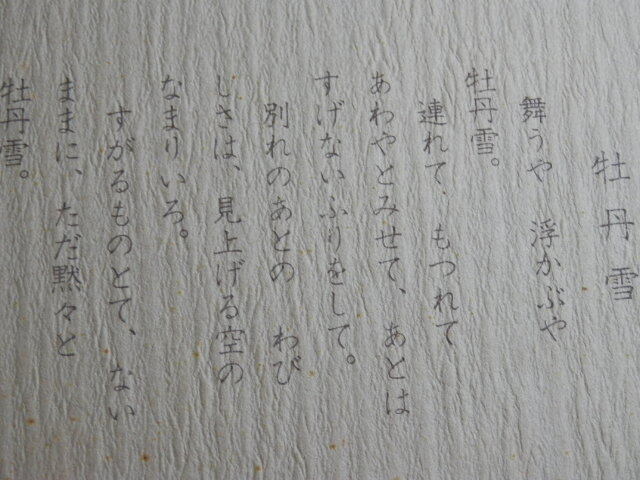 牡丹雪
舞うや　浮かぶや
牡丹雪。
連れて、もつれて
あわやとみせて、あとは
すげないふりをして。
別れのあとの　わび
しさは、見上げる空の
なまりいろ。
すがるものとて、ない
ままに、ただ黙々と
牡丹雪。